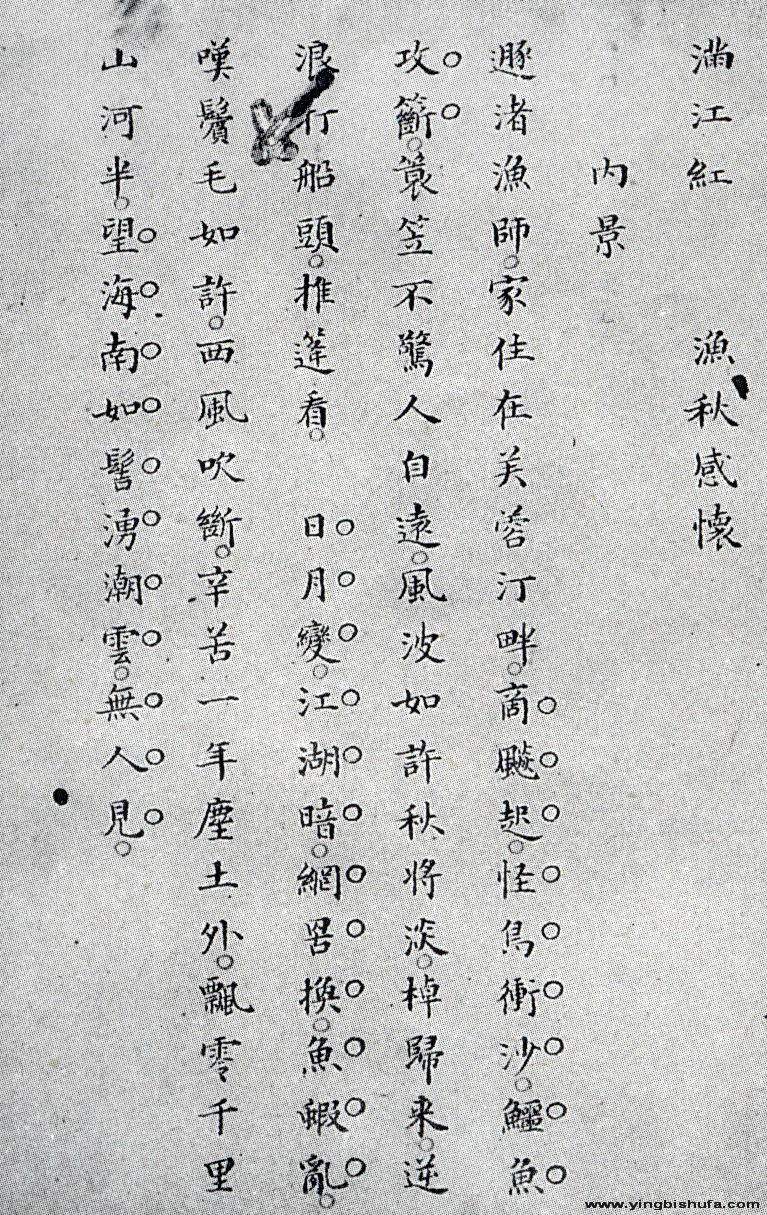 滿江紅　漁秋感懷
内景
遯渚漁師。家住在芙蓉汀畔。商飈起。怪鳥衝沙。鱷魚
攻籪。蓑笠不驚人自遠。風波如許秋將淡。棹歸来。逆
浪打船頭。推篷看。　日月變。江湖暗。網罟換。魚蝦亂。
嘆鬢毛如許。西風吹斷。辛苦一年塵土外。飄零千里
山河半。望海南如髻湧潮雲。無人見。
www.yingbishufa.com